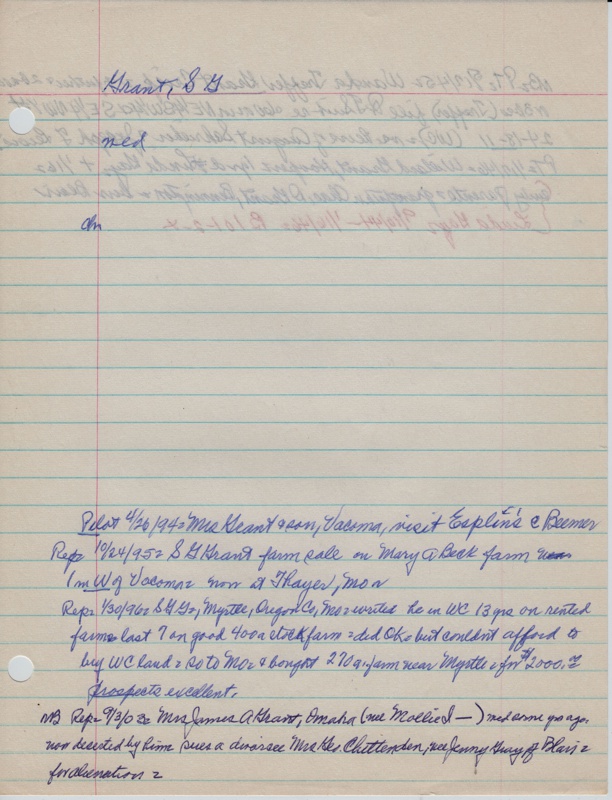 Grant, S G
med
ch
Pilot 4/26/94= Mrs Grant & son, Vacoma, visit Esplin's c Beemer
Rep= 10/24/95= S G Grant farm sale on Mary A Beck farm
1 m W of Vacoma= now at Thayer, Mo=
Rep= 1/30/96= S G G=, Myrtle, Oregon Co, Mo= writes he in WC 13 yrs on rented
farm= last 7 on good 400 a stock farm= did OK= but couldnt afford to
buy WC land= so to Mo= & bought 270 a= farm near Myrtle= for $2000.=
prospects excellent.
NB Rep= 9/3/03= Mrs James A Grant, Omaha (nee Mollie S —) med some yrs ago,
now deserted by him= sues a divorcee Mrs Geo. Chittenden, nee Jenny Gray of Blair=
for alienation=